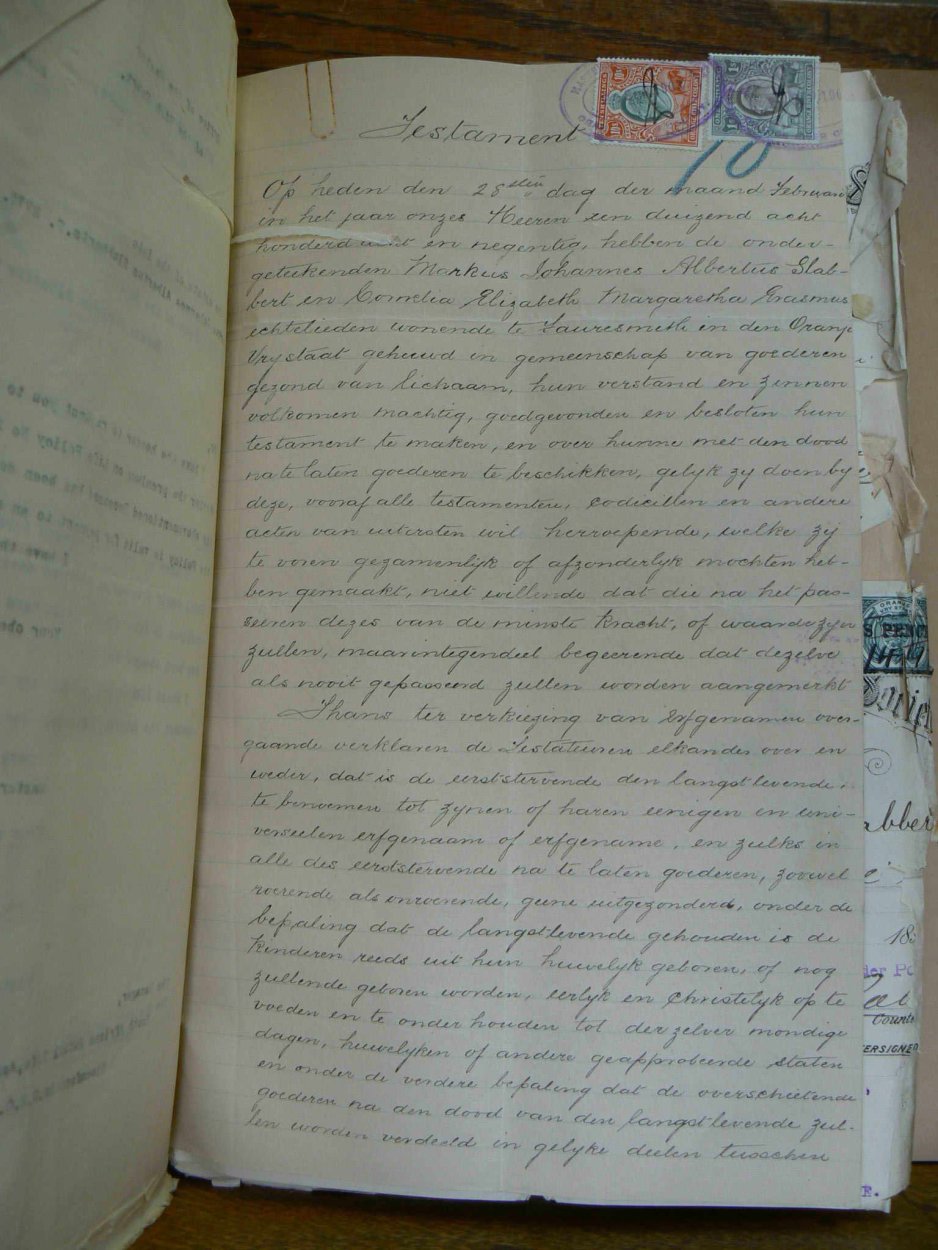 Testament
10
Op heden den 28sten dag der maand Februari
in het jaar onzes Heeren een duizend acht
honderd acht en negentig, hebben de onder-
geteekenden Markus Johannes Albertus Slab-
bert en Cornelia Elizabeth Margaretha Erasmus
echtelieden wonende te Fauresmith in den Oranje
Vrystaat gehuwd in gemeenschap van goederen
gezond van lichaam, hun verstand en zinnen
volkomen machtig, goedgevonden en besloten hun
testament te maken, en over hunne met den dood
na te laten goederen te beschikken, gelyk zy doen by
deze, vooraf alle testamenten, codicillen en andere
acten van uitersten wil herroepende, welke zij
te voren gezamenlyk of afzonderlyk mochten heb-
ben gemaakt, niet willende dat die na het pas-
seeren dezes van de minste kracht, of waarde zyn
zullen, maar integendeel begeerende dat dezelve
als nooit gepasseerd zullen worden aangemerkt
Thans ter verkiezing van Erfgenamen over-
gaande verklaren de Testateuren elkander over en
weder, dat is de eerststervende den langstlevende,
te benoemen tot zynen of haren eenigen en uni-
verseelen erfgenaam of erfgename, en zulks in
alle des eerststervende na te laten goederen, zoowel
roerende als onroerende, geene uitgezonderd, onder de
bepaling dat de langstlevende gehouden is de
kinderen reeds uit hun huwelyk geboren, of nog
zullende geboren worden, eerlyk en Christelyk op te
voeden en te onderhouden tot derzelver mondige
dagen, huwelyken of andere geapprobeerde staten
en onder de verdere bepaling dat de overschietende
goederen na den dood van den langstlevende zul-
len worden verdeeld in gelyke deelen tusschen
ORANGE
PENCE
abber
183
der Po
Counte
ERSIGNED